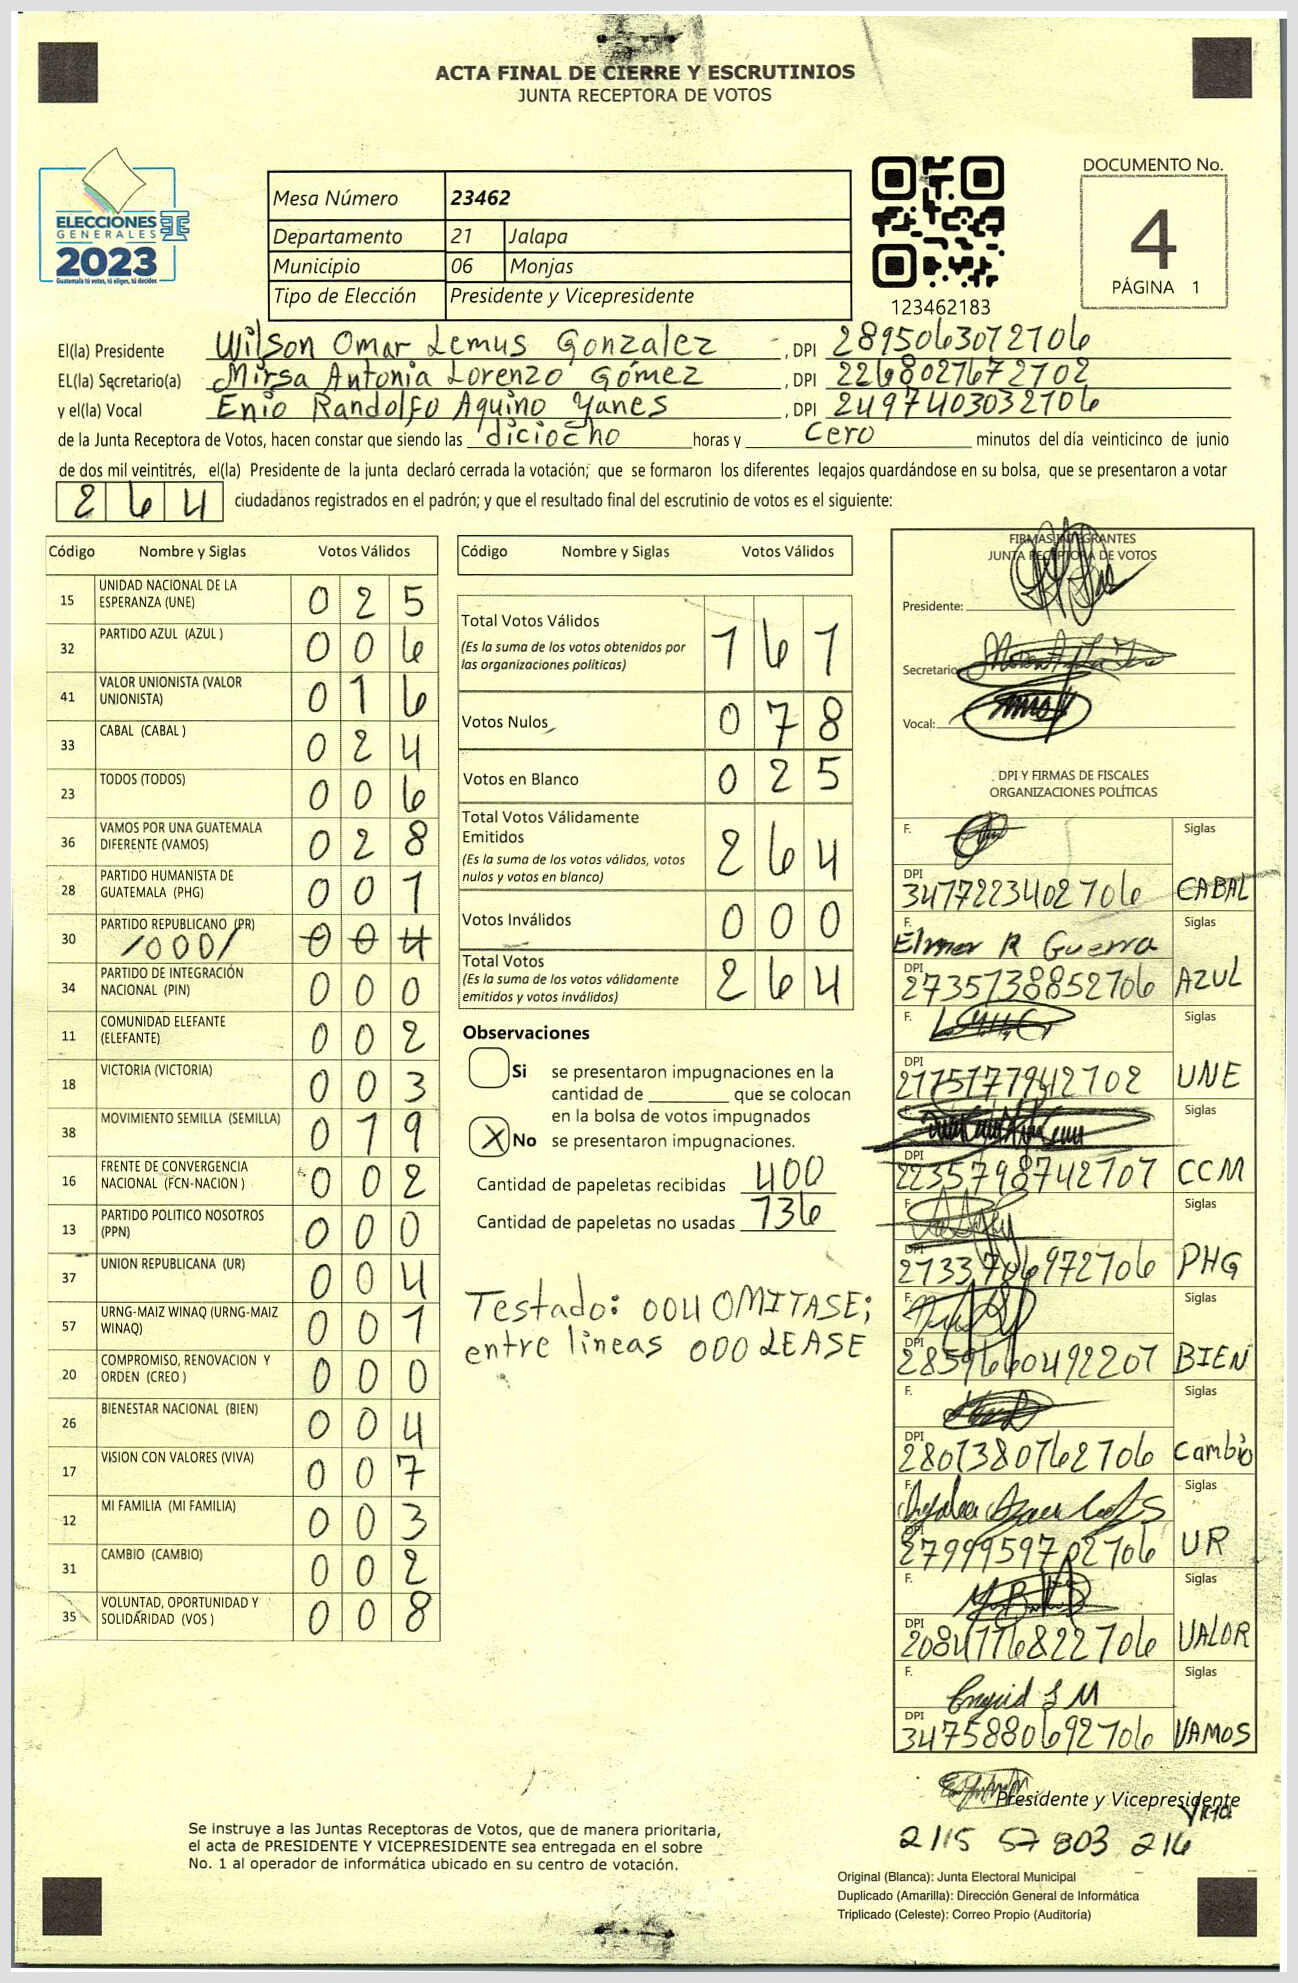 ACTA FINAL DE CIERRE Y ESCRUTINIOS
JUNTA RECEPTORA DE VOTOS
ELECCIONES
GENERALES
2023
Guatemala tú votas, tú eliges, tú decides
Mesa Número 23462
Departamento 21 Jalapa
Municipio 06 Monjas
Tipo de Elección Presidente y Vicepresidente
123462183
DOCUMENTO No.
4
PÁGINA 1
El(la) Presidente Wilson Omar Lemus Gonzalez, DPI 2895063072106
EL(la) Secretario(a) Mirsa Antonia Lorenzo Gómez, DPI 2268021672102
y el(la) Vocal Enio Randolfo Aquino Yanes, DPI 2497403032106
de la Junta Receptora de Votos, hacen constar que siendo las diciocho horas y cero minutos del día veinticinco de junio
de dos mil veintitrés, el(la) Presidente de la junta declaró cerrada la votación; que se formaron los diferentes legajos guardándose en su bolsa, que se presentaron a votar
264 ciudadanos registrados en el padrón; y que el resultado final del escrutinio de votos es el siguiente:
Código Nombre y Siglas Votos Válidos
15 UNIDAD NACIONAL DE LA ESPERANZA (UNE) 025
32 PARTIDO AZUL (AZUL ) 006
41 VALOR UNIONISTA (VALOR UNIONISTA) 016
33 CABAL (CABAL ) 024
23 TODOS (TODOS) 006
36 VAMOS POR UNA GUATEMALA DIFERENTE (VAMOS) 028
28 PARTIDO HUMANISTA DE GUATEMALA (PHG) 001
30 PARTIDO REPUBLICANO (PR) /000/ 004
34 PARTIDO DE INTEGRACIÓN NACIONAL (PIN) 000
11 COMUNIDAD ELEFANTE (ELEFANTE) 002
18 VICTORIA (VICTORIA) 003
38 MOVIMIENTO SEMILLA (SEMILLA) 019
16 FRENTE DE CONVERGENCIA NACIONAL (FCN-NACION ) 002
13 PARTIDO POLITICO NOSOTROS (PPN) 000
37 UNION REPUBLICANA (UR) 004
57 URNG-MAIZ WINAQ (URNG-MAIZ WINAQ) 001
20 COMPROMISO, RENOVACION Y ORDEN (CREO ) 000
26 BIENESTAR NACIONAL (BIEN) 004
17 VISION CON VALORES (VIVA) 007
12 MI FAMILIA (MI FAMILIA) 003
31 CAMBIO (CAMBIO) 002
35 VOLUNTAD, OPORTUNIDAD Y SOLIDARIDAD (VOS ) 008
Código Nombre y Siglas Votos Válidos
Total Votos Válidos 161
(Es la suma de los votos obtenidos por
las organizaciones políticas)
Votos Nulos 078
Votos en Blanco 025
Total Votos Válidamente
Emitidos 264
(Es la suma de los votos válidos, votos
nulos y votos en blanco)
Votos Inválidos 000
Total Votos 264
(Es la suma de los votos válidamente
emitidos y votos inválidos)
Observaciones
Si se presentaron impugnaciones en la
cantidad de ________ que se colocan
en la bolsa de votos impugnados
X No se presentaron impugnaciones.
Cantidad de papeletas recibidas 400
Cantidad de papeletas no usadas 136
Testado: 004 OMITASE;
entre lineas 000 LEASE
FIRMAS INTEGRANTES
JUNTA RECEPTORA DE VOTOS
Presidente:
Secretario:
Vocal:
DPI Y FIRMAS DE FISCALES
ORGANIZACIONES POLÍTICAS
F. Siglas
DPI 3417223402706 CABAL
F. Elmer R Guerra Siglas
DPI 2735138852706 AZUL
F. Siglas
DPI 2175177942102 UNE
F. Siglas
DPI 2235798742107 CCM
F. Siglas
DPI PHG
F. Siglas
DPI BIEN
F. Siglas
DPI 2801380762706 Cambio
F. Siglas
DPI UR
F. Siglas
DPI VALOR
F. Siglas
DPI 3475880692706 VAMOS
Presidente y Vicepresidente
2115 57 803 216
Se instruye a las Juntas Receptoras de Votos, que de manera prioritaria,
el acta de PRESIDENTE Y VICEPRESIDENTE sea entregada en el sobre
No. 1 al operador de informática ubicado en su centro de votación.
Original (Blanca): Junta Electoral Municipal
Duplicado (Amarilla): Dirección General de Informática
Triplicado (Celeste): Correo Propio (Auditoría)